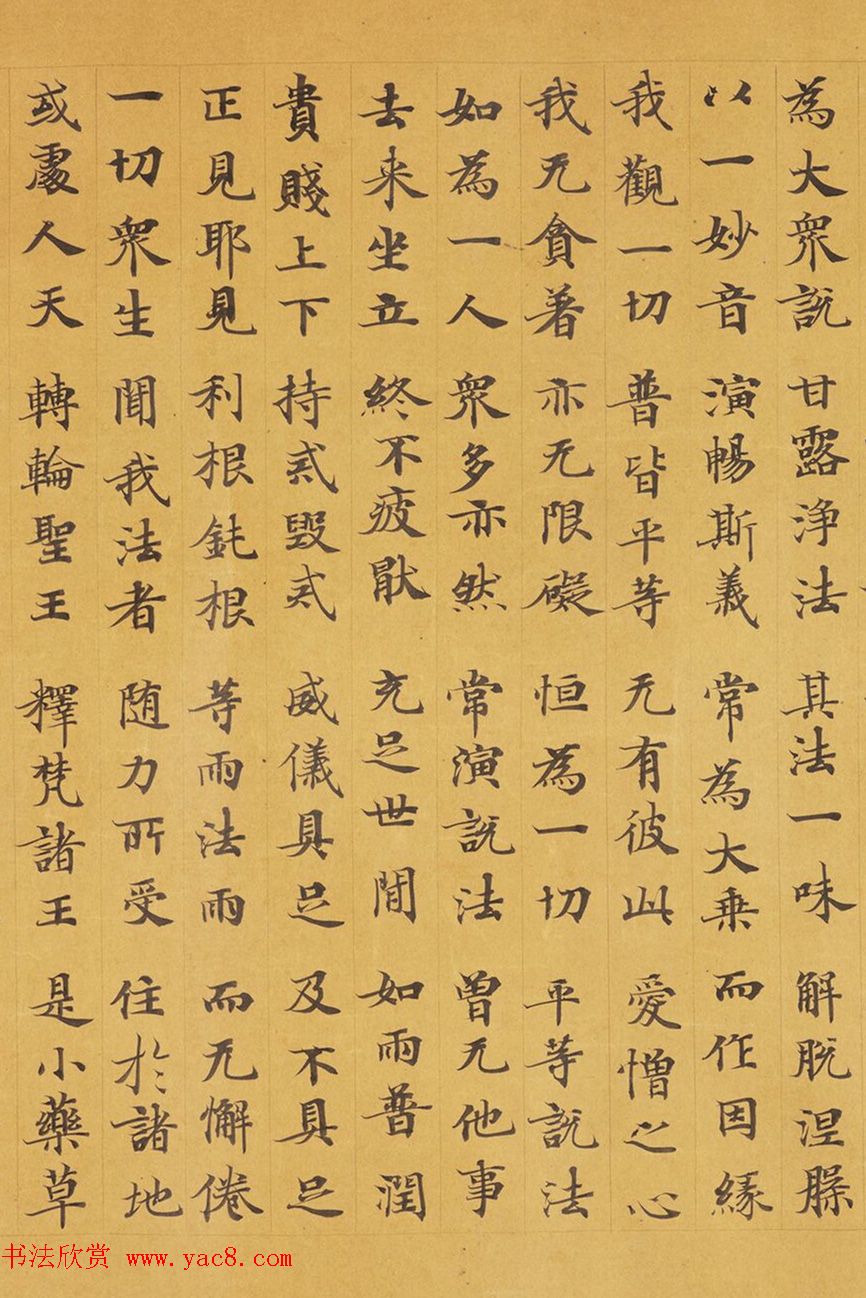 為大眾說 甘露淨法 其法一味 解脫涅槃
以一妙音 演暢斯義 常為大乗 而作因緣
我觀一切 普皆平等 无有彼此 愛憎之心
我无貪著 亦无限礙 恒為一切 平等說法
如為一人 眾多亦然 常演說法 曾无他事
去来坐立 終不疲猒 充足世間 如雨普潤
貴賤上下 持戒毀戒 威儀具足 及不具足
正見耶見 利根鈍根 等雨法雨 而无懈倦
一切眾生 聞我法者 随力所受 住於諸地
或處人天 轉輪聖王 釋梵諸王 是小藥草
书法欣赏 www.yac8.com